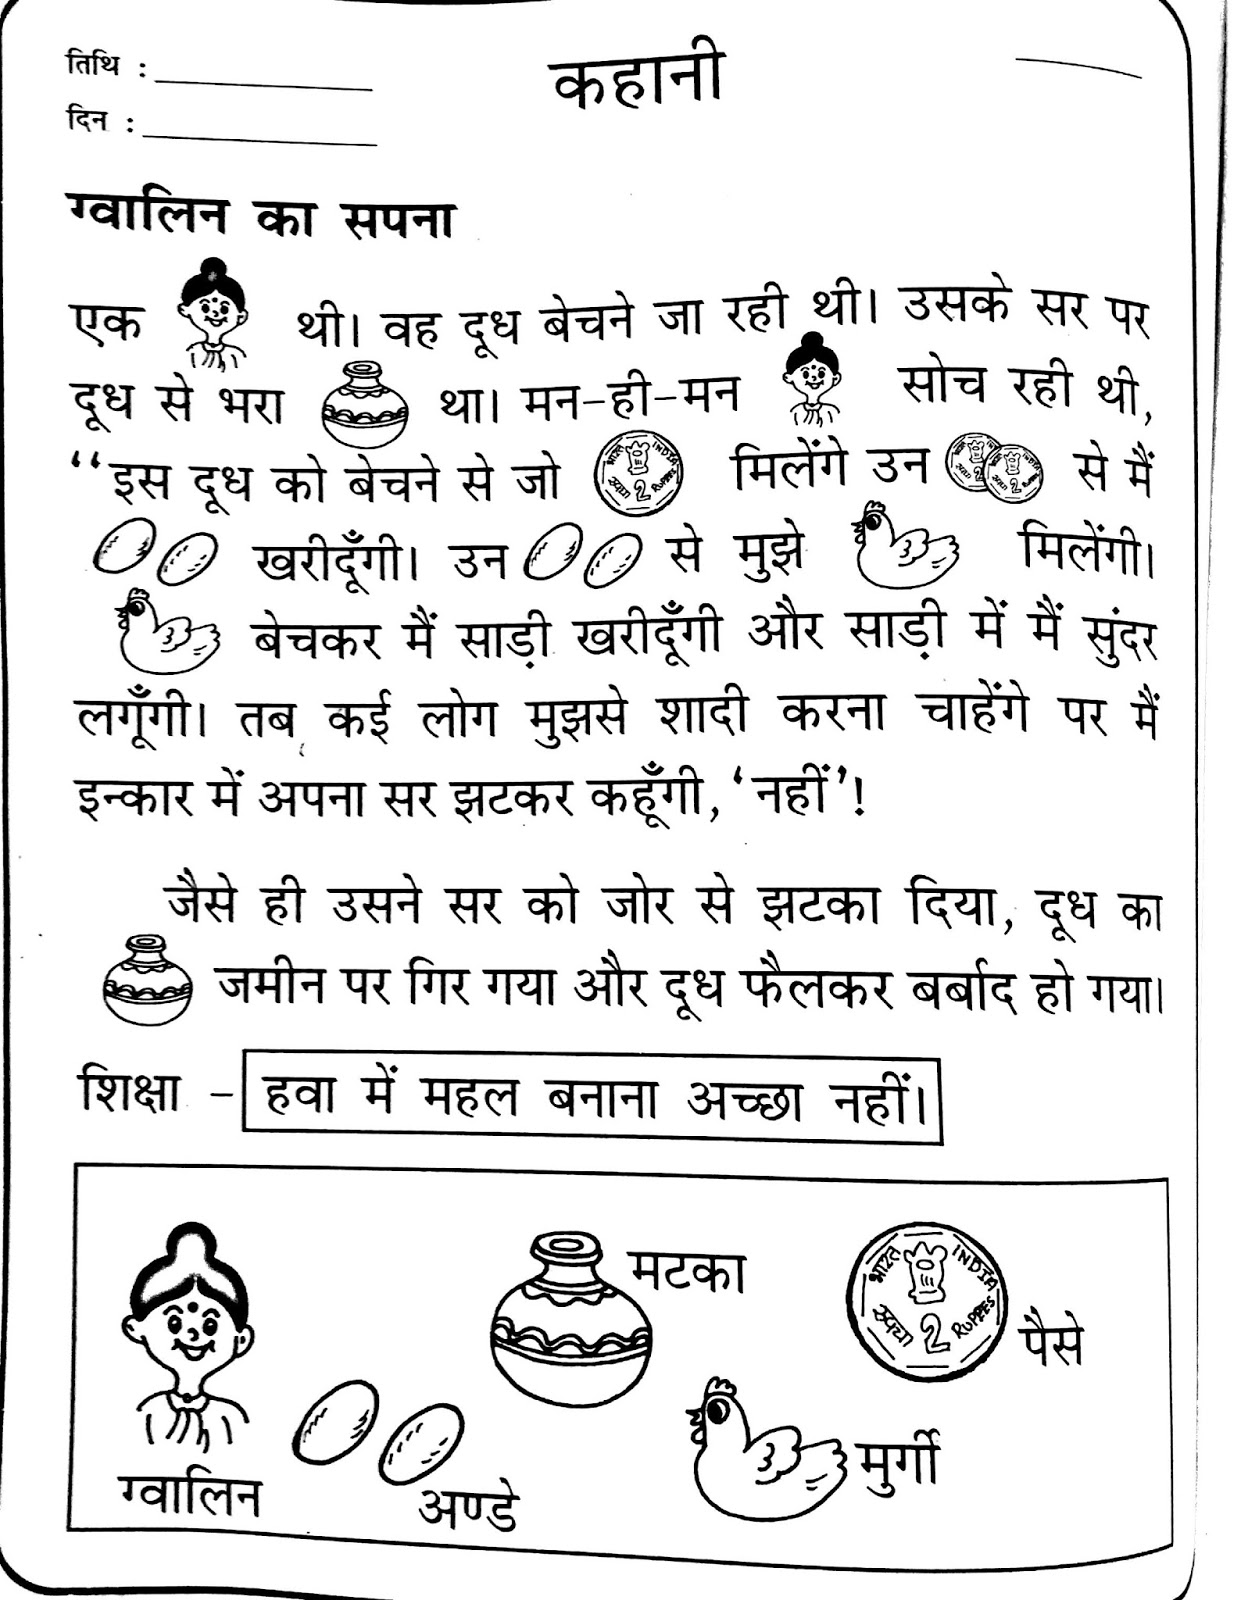 तिथि :
कहानी
दिन :
ग्वालिन का सपना
एक थी। वह दूध बेचने जा रही थी। उसके सर पर
दूध से भरा था। मन-ही-मन सोच रही थी,
“इस दूध को बेचने से जो भारत INDIA रुपया 2 RUPEES मिलेंगे उन 2 2 से मैं
खरीदूँगी। उन से मुझे मिलेंगी।
बेचकर मैं साड़ी खरीदूँगी और साड़ी में मैं सुंदर
लगूँगी। तब कई लोग मुझसे शादी करना चाहेंगे पर मैं
इन्कार में अपना सर झटकर कहूँगी, ‘नहीं’!
जैसे ही उसने सर को जोर से झटका दिया, दूध का
जमीन पर गिर गया और दूध फैलकर बर्बाद हो गया।
शिक्षा - हवा में महल बनाना अच्छा नहीं।
मटका
भारत INDIA
रुपया 2 RUPEES
पैसे
मुर्गी
ग्वालिन
अण्डे